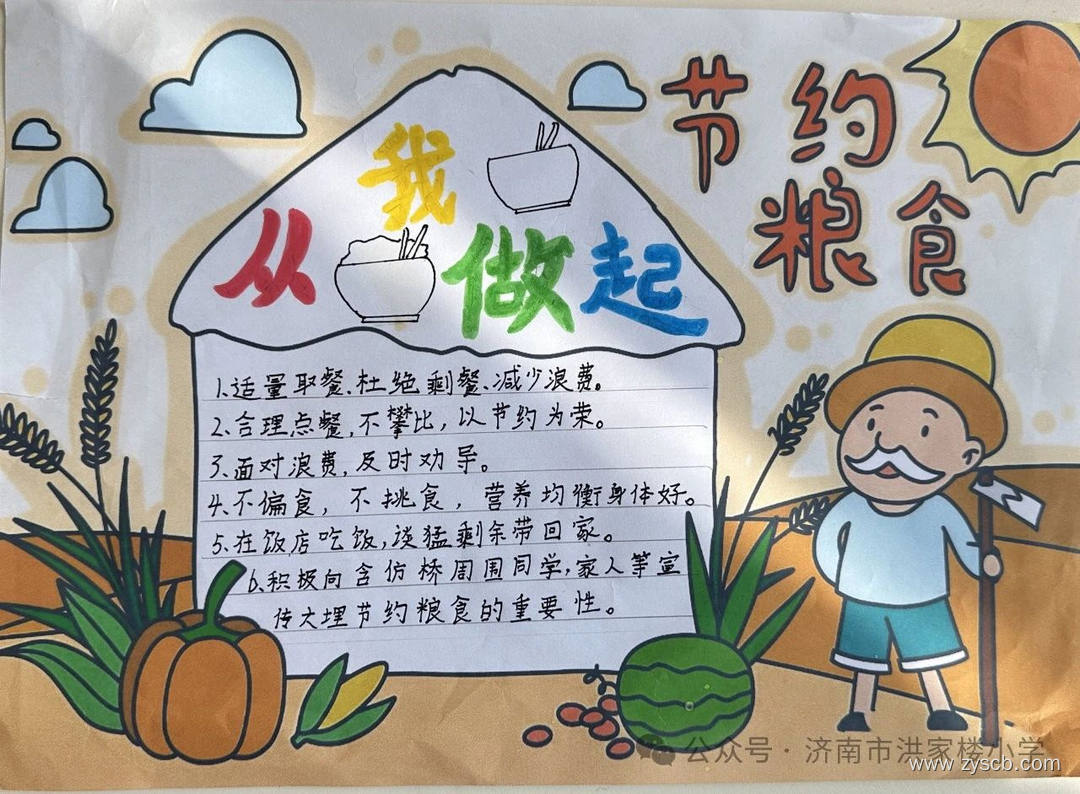 节约
粮食
从我做起
1、适量取餐、杜绝剩餐、减少浪费。
2、合理点餐,不攀比,以节约为荣。
3、面对浪费,及时劝导。
4、不偏食,不挑食,营养均衡身体好。
5、在饭店吃饭,谈猛剩余带回家。
6.积极向含仿桥周围同学,家人等宣
传大埋节约粮食的重要性。
公众号·济南市洪家楼小学
www.zyscb.com